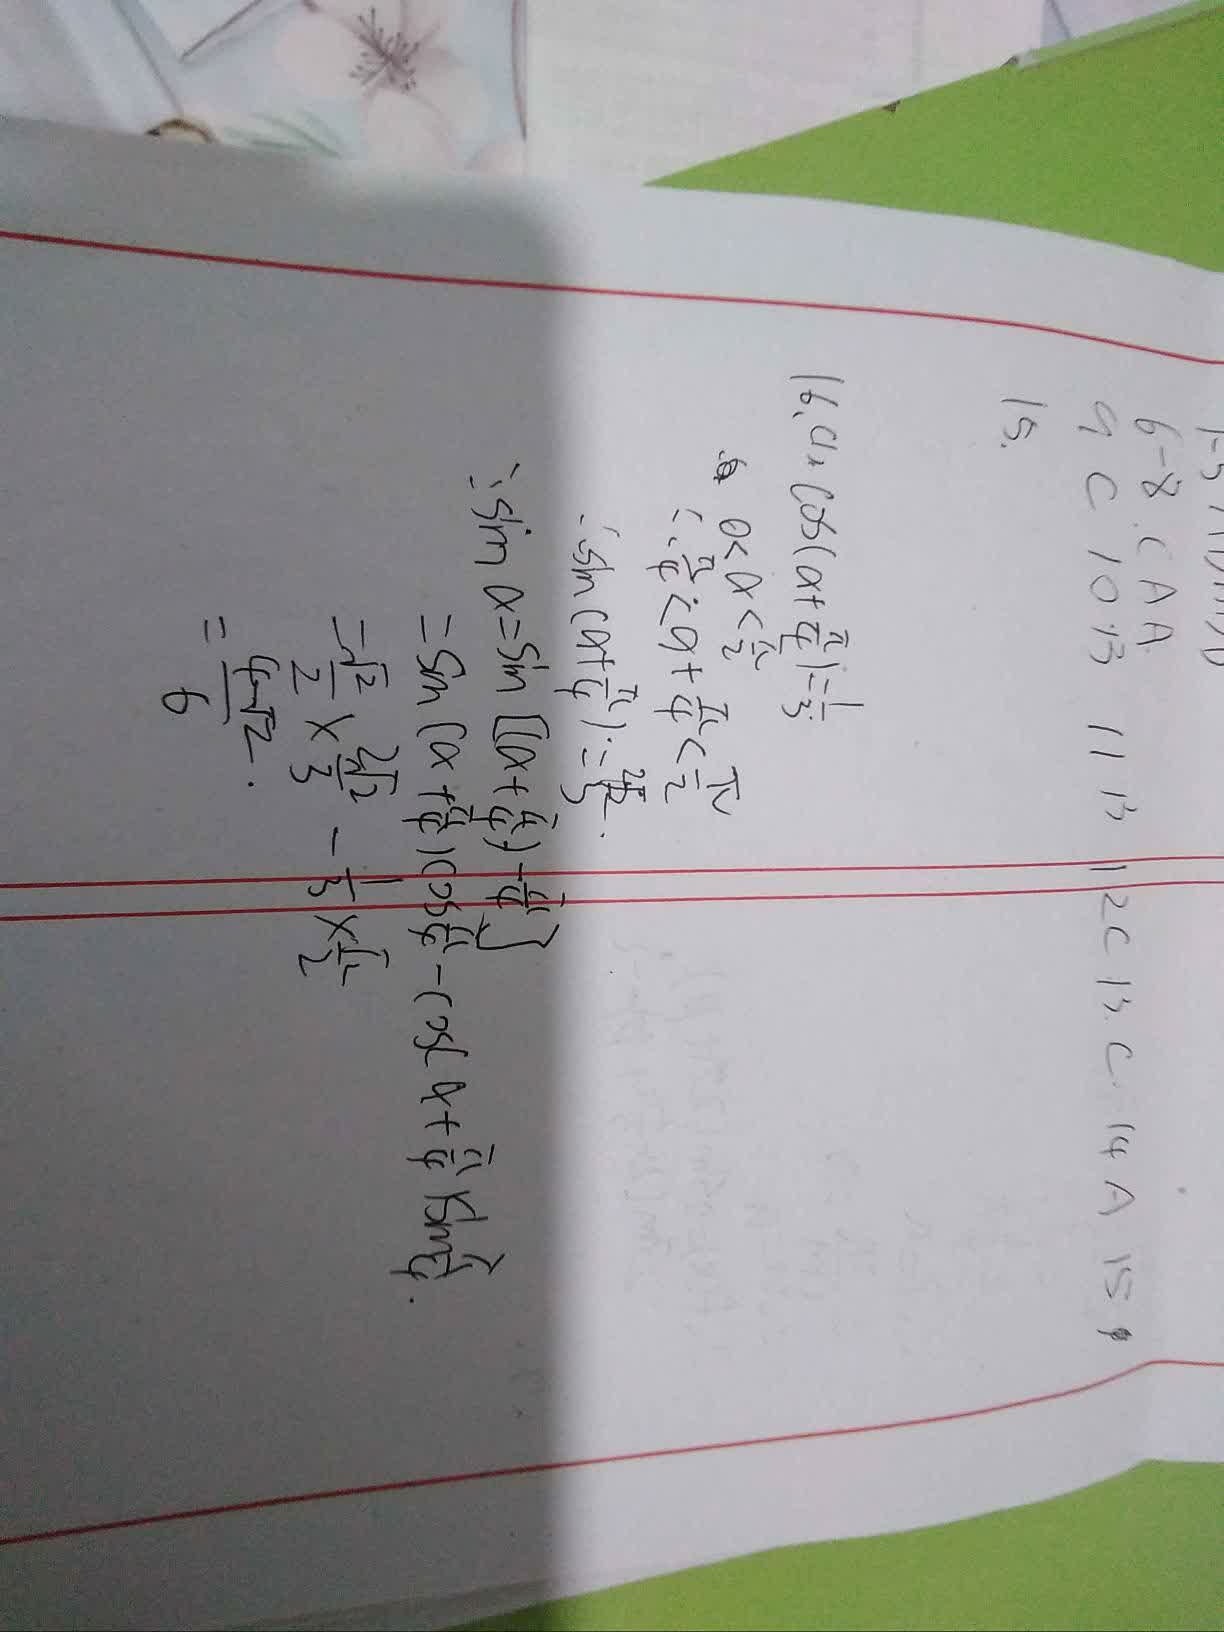 6-8. CAA
9 C 10 B 11 B 12 C 13. C 14 A 15
15.
16. (1). cos(α+π/4)=1/3
0<α<π/2
∴ π/4<α+π/4<π/2
∴ sin(α+π/4)=2√2/3.
∴ sin α=sin[(α+π/4)-π/4]
=sin(α+π/4)cosπ/4-cos(α+π/4)sinπ/4.
=√2/2×2√2/3-1/3×√2/2
=4-√2/6.